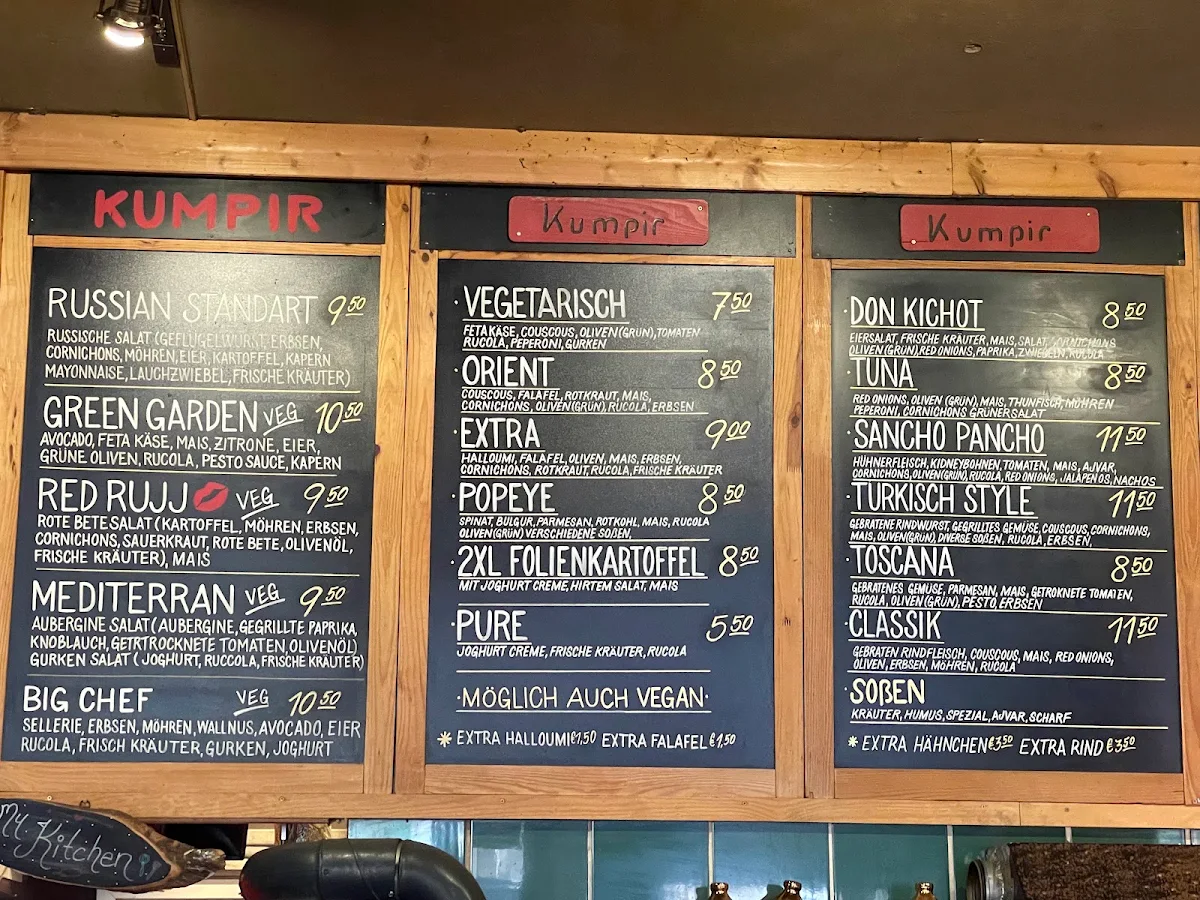 KUMPIR
RUSSIAN STANDART 9 50
RUSSISCHE SALAT (GEFLÜGELWURST, ERBSEN,
CORNICHONS, MÖHREN, EIER, KARTOFFEL, KAPERN
MAYONNAISE, LAUCHZWIEBEL, FRISCHE KRÄUTER)
GREEN GARDEN VEG 10 50
AVOCADO, FETA KÄSE, MAIS, ZITRONE, EIER,
GRÜNE OLIVEN, RUCOLA, PESTO SAUCE, KAPERN
RED RUJJ VEG 9 50
ROTE BETE SALAT (KARTOFFEL, MÖHREN, ERBSEN,
CORNICHONS, SAUERKRAUT, ROTE BETE, OLIVENÖL,
FRISCHE KRÄUTER), MAIS
MEDITERRAN VEG 9 50
AUBERGINE SALAT (AUBERGINE, GEGRILLTE PAPRIKA,
KNOBLAUCH, GETRTROCKNETE TOMATEN, OLIVENÖL)
GURKEN SALAT ( JOGHURT, RUCCOLA, FRISCHE KRÄUTER)
BIG CHEF VEG 10 50
SELLERIE, ERBSEN, MÖHREN, WALLNUS, AVOCADO, EIER
RUCOLA, FRISCH KRÄUTER, GURKEN, JOGHURT
Kumpir
· VEGETARISCH 7 50
FETAKÄSE, COUSCOUS, OLIVEN (GRÜN), TOMATEN
RUCOLA, PEPERONI, GURKEN
· ORIENT 8 50
COUSCOUS, FALAFEL, ROTKRAUT, MAIS,
CORNICHONS, OLIVEN (GRÜN), RUCOLA, ERBSEN
· EXTRA 9 00
HALLOUMI, FALAFEL, OLIVEN, MAIS, ERBSEN,
CORNICHONS, ROTKRAUT, RUCOLA, FRISCHE KRÄUTER
· POPEYE 8 50
SPINAT, BULGUR, PARMESAN, ROTKOHL, MAIS, RUCOLA
OLIVEN (GRÜN) VERSCHIEDENE SOßEN,
· 2XL FOLIENKARTOFFEL 8 50
MIT JOGHURT CREME, HIRTEM SALAT, MAIS
· PURE 5 50
JOGHURT CREME, FRISCHE KRÄUTER, RUCOLA
· MÖGLICH AUCH VEGAN ·
* EXTRA HALLOUMI €1,50 EXTRA FALAFEL €1,50
Kumpir
· DON KICHOT 8 50
EIERSALAT, FRISCHE KRÄUTER, MAIS, SALAT, CORNICHONS
OLIVEN (GRÜN), RED ONIONS, PAPRIKA, ZWIEBELN, RUCOLA
· TUNA 8 50
RED ONIONS, OLIVEN (GRÜN), MAIS, THUNFISCH, MÖHREN
PEPERONI, CORNICHONS GRÜNER SALAT
· SANCHO PANCHO 11 50
HÜHNERFLEISCH, KIDNEYBOHNEN, TOMATEN, MAIS, AJVAR,
CORNICHONS, OLIVEN (GRÜN), RUCOLA, RED ONIONS, JALAPENOS, NACHOS
· TURKISCH STYLE 11 50
GEBRATENE RINDWURST, GEGRILLTES GEMÜSE, COUSCOUS, CORNICHONS,
MAIS, OLIVEN (GRÜN), DIVERSE SOßEN, RUCOLA, ERBSEN,
· TOSCANA 8 50
GEBRATENES GEMÜSE, PARMESAN, MAIS, GETROKNETE TOMATEN,
RUCOLA, OLIVEN (GRÜN), PESTO, ERBSEN
· CLASSIK 11 50
GEBRATEN RINDFLEISCH, COUSCOUS, MAIS, RED ONIONS,
OLIVEN, ERBSEN, MÖHREN, RUCOLA
· SOßEN
KRÄUTER, HUMUS, SPEZIAL, AJVAR, SCHARF
* EXTRA HÄHNCHEN €3 50 EXTRA RIND €3 50
My Kitchen